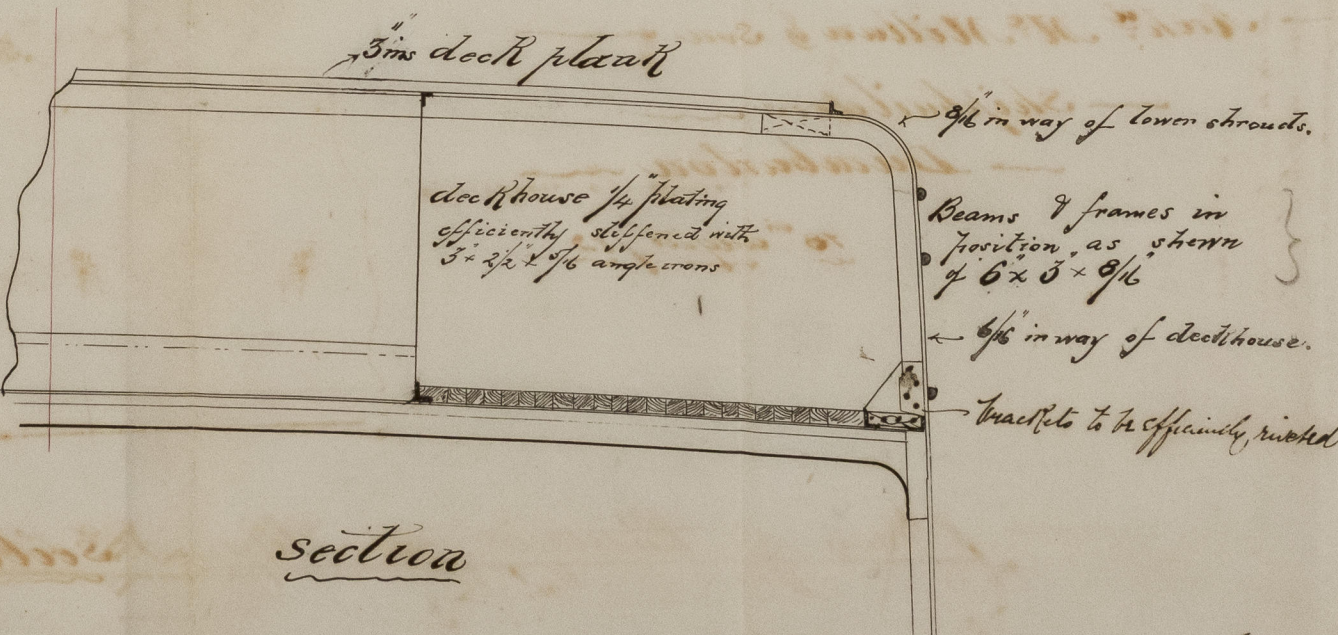 3"ins deck plank
8/16" in way of lower shrouds.
deckhouse 1/4" plating
efficiently stiffened with
3" x 2 1/2" x 5/16 angle irons
Beams & frames in
position as shewn
of 6" x 3" x 8/16"
6/16" in way of deckhouse.
brackets to be efficiently riveted
section